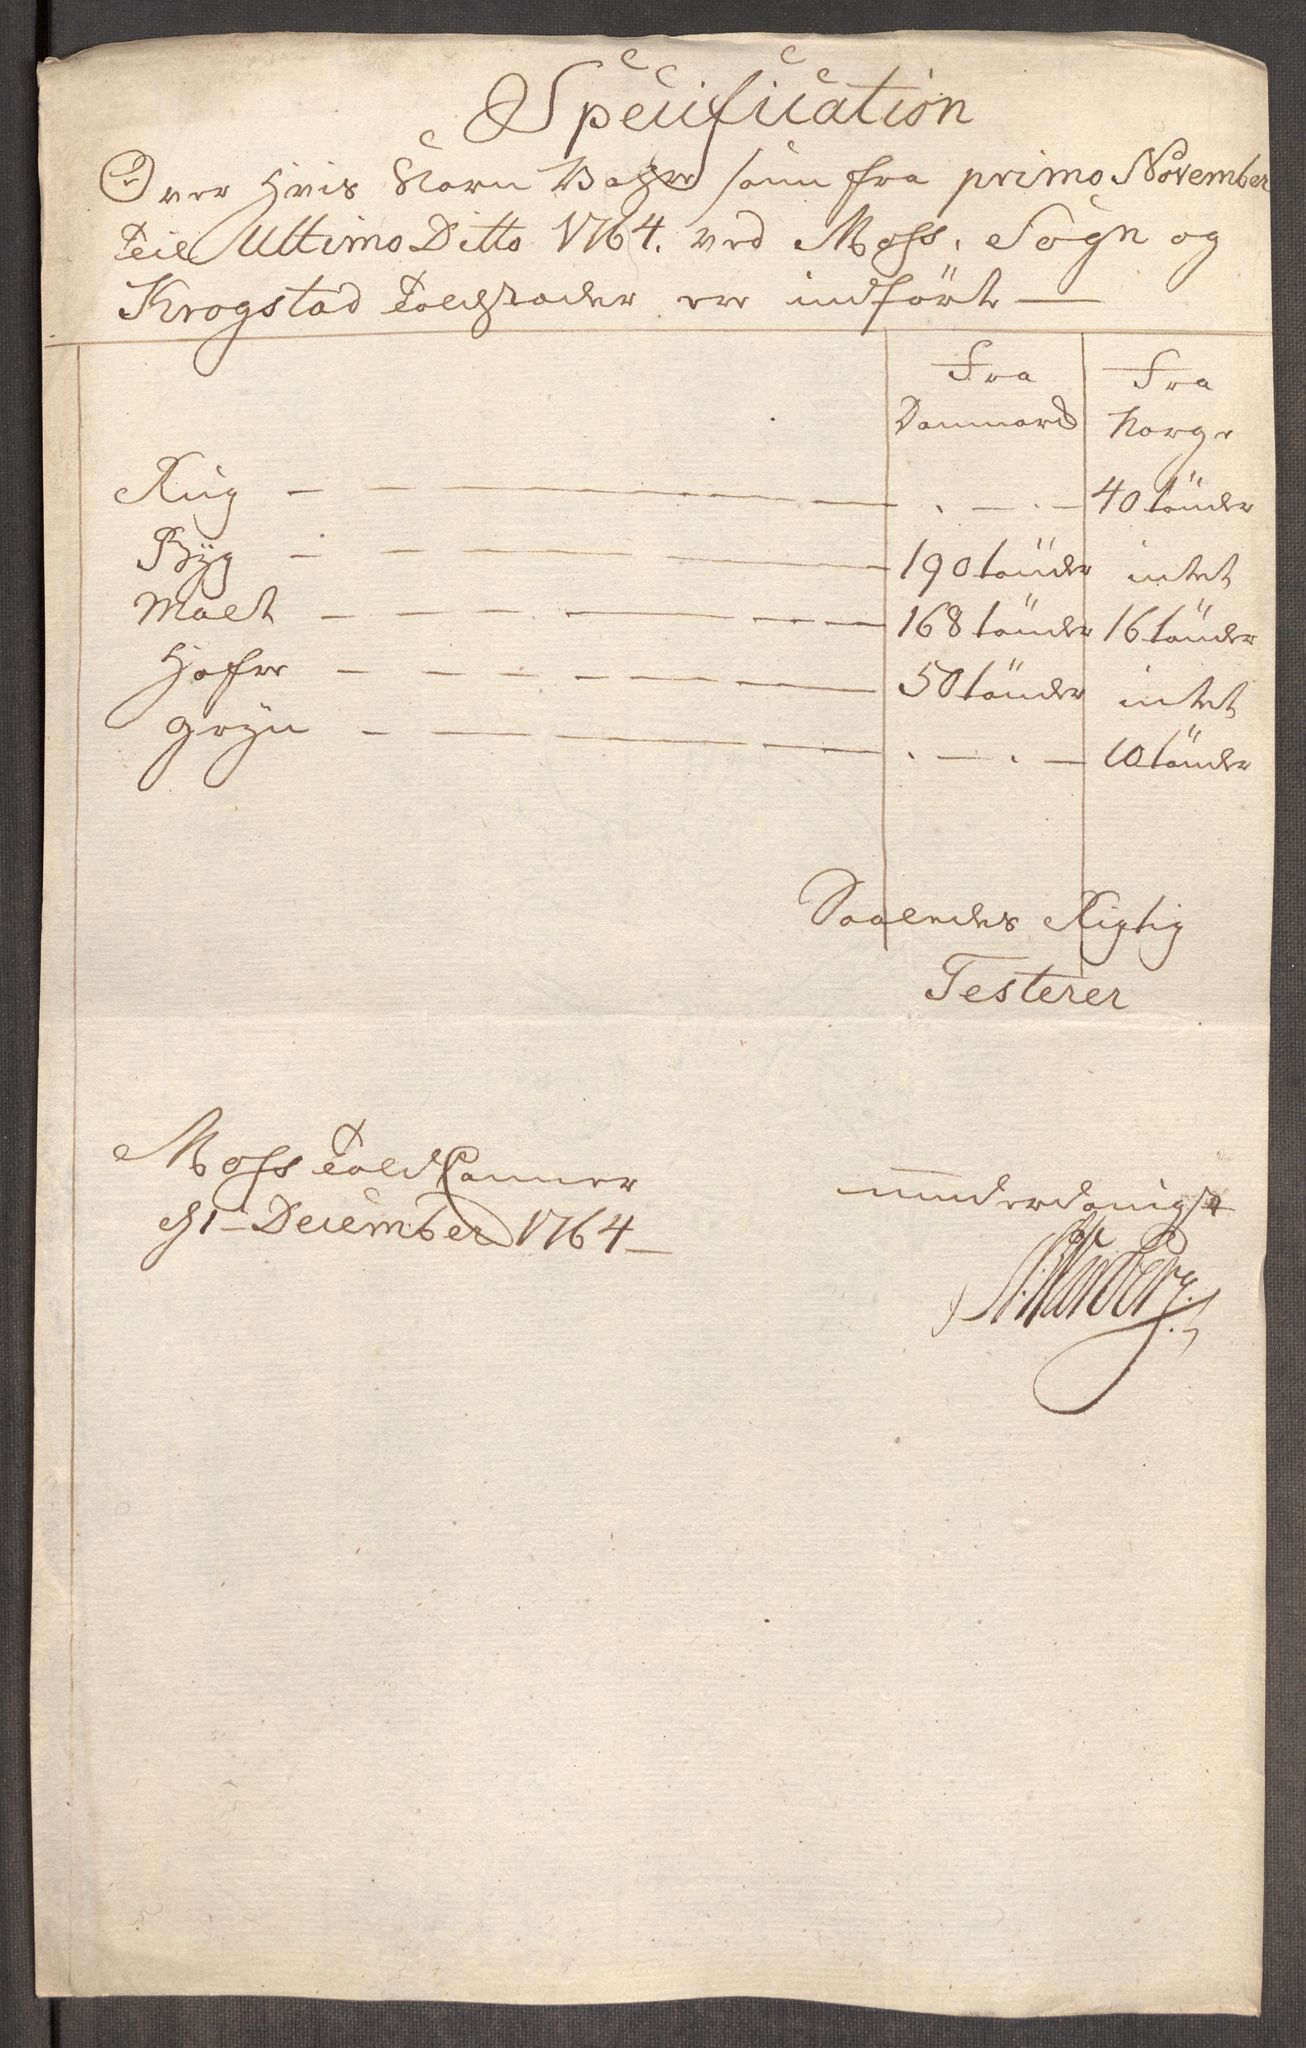 Specification
Over hvis Korn Vahre som fra primo November
till Ultimo Ditto 1764. ved Moss, Sögn og
Krogstad Toldstæder ere indförte —
Fra Danmark
Fra Norge
Rug — — — . — . — 40 tönder
Byg — — — 190 tönder intet
Malt — — — 168 tönder 16 tönder
Hafre — — — 50 tönder intet
gryn — — — . — . — 10 tönder
Saaledes Rigtig
Testerer
Moss Told Camer
d 1 – December 1764 –
underdanigst